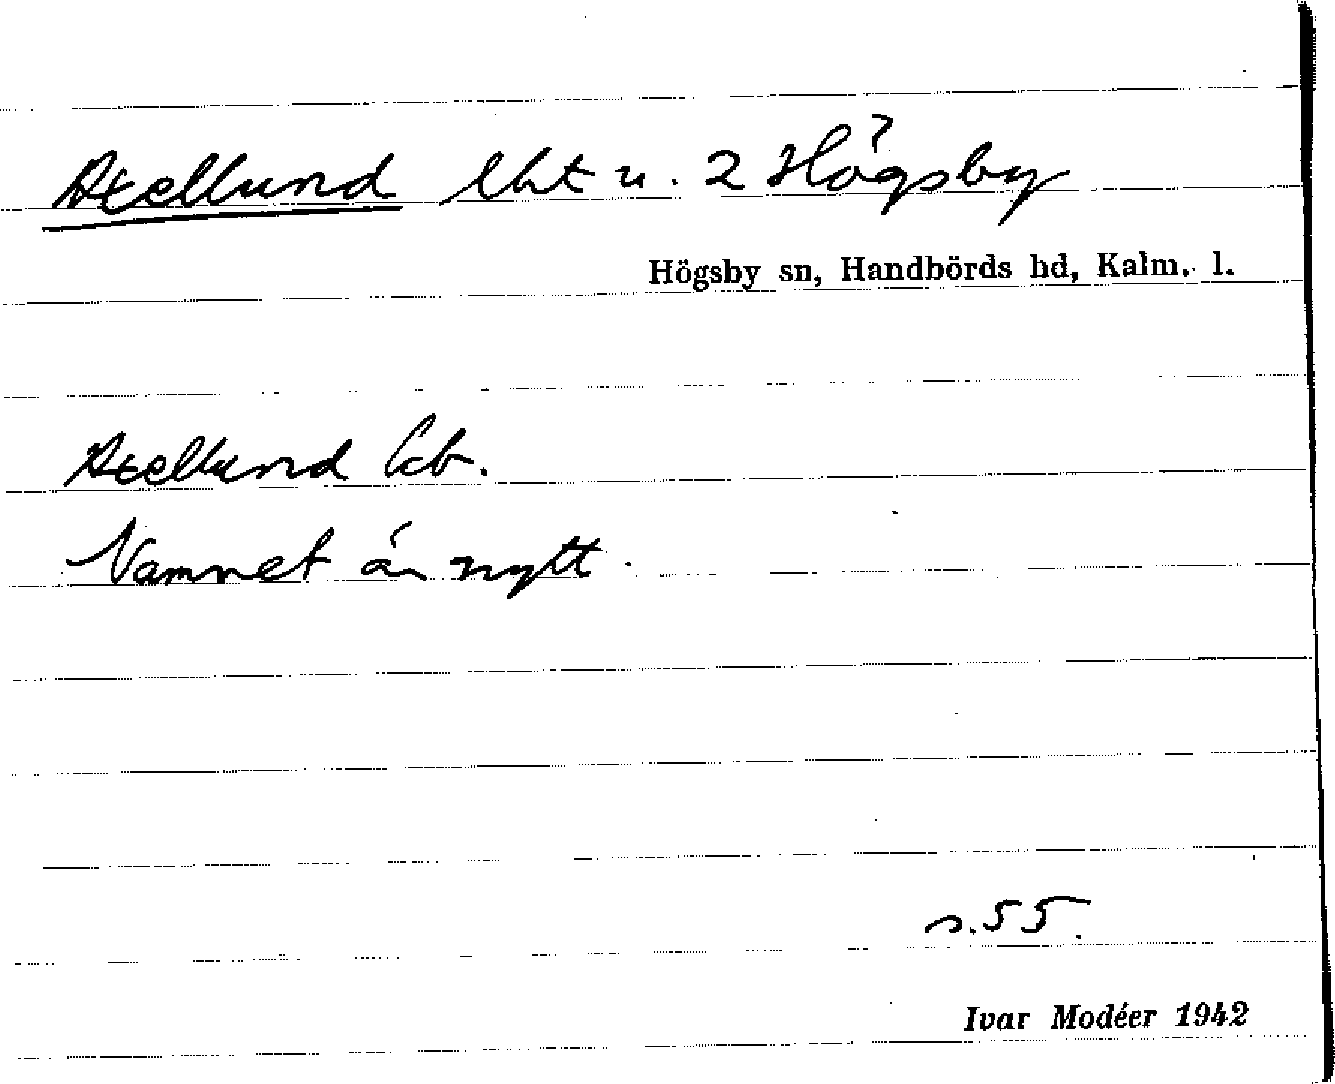 Axellund lht u. 2 Högsby
Högsby sn, Handbörds hd, Kalm. l.
Axellund
Namnet är nytt.
s. 55.
Ivar Modéer 1942